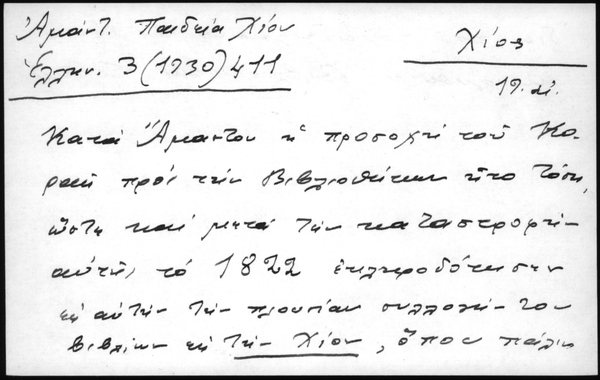 Ἀμάντ. Παιδεία Χίου
Χίος
Ἑλλην. 3 (1930) 411
19. αἰ.
Κατά Ἄμαντον ἡ προσοχή τοῦ Κο-
ραῆ πρός τήν Βιβλιοθήκην ἦτο τόση,
ὥστε καί μετά τήν καταστροφήν
αὐτῆς τό 1822 ἐκληροδότησεν
εἰς αὐτήν τήν πλουσίαν συλλογήν του
βιβλίων εἰς τήν Χίον, ὅπου πάλιν